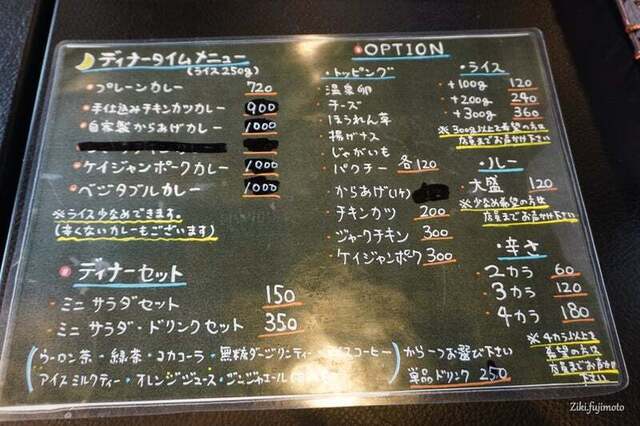 ディナータイムメニュー
(ライス250g)
・プレーンカレー 720
・手仕込みチキンカツカレー 900
・自家製からあげカレー 1000
・ケイジャンポークカレー 1000
・ベジタブルカレー 1000
※ライス少なめできます。
(辛くないカレーもございます)
ディナーセット
・ミニサラダセット 150
・ミニサラダ・ドリンクセット 350
ウーロン茶・緑茶・コカコーラ・無糖ダージリンティー・アイスコーヒー
アイスミルクティー・オレンジジュース・ジンジャエール
から一つお選び下さい
単品ドリンク 250
OPTION
・トッピング
温泉卵
チーズ
ほうれん草
揚げナス
じゃがいも
パクチー 各120
・からあげ(1ケ)
・チキンカツ 200
・ジャークチキン 300
・ケイジャンポーク 300
・ライス
・+100g 120
・+200g 240
・+300g 360
※300g以上を希望の方は
店員までお声かけ下さい
・ルー
大盛 120
※少なめ希望の方は
店員までお声かけ下さい
・辛さ
・2カラ 60
・3カラ 120
・4カラ 180
※4カラ以上を
希望の方は
店員までお声かけ
下さい
Ziki.fujimoto